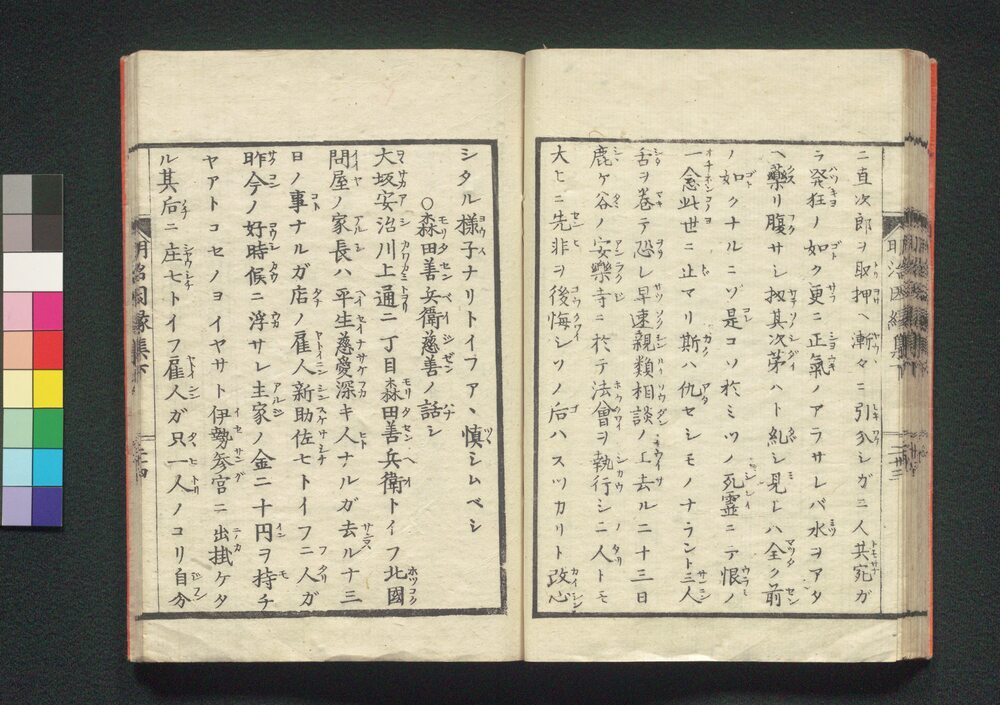 ニ直次郎ヲ取押ヘ漸々ニ引分シガ三人共宛ガ
ラ発狂ノ如ク更ニ正氣ノアラサレバ水ヲアタ
ヘ藥リ腹サシ扨其次第ハト糺シ見レハ全ク前
ノ如クナルニゾ是コソ於ミツノ死靈ニテ恨ノ
一念此世ニ止マリ斯ハ仇セシモノナラント三人
舌ヲ巻テ恐レ早速親類相談ノ上去ル二十三日
鹿ケ谷ノ安樂寺ニ於テ法會ヲ執行シ二人トモ
大ヒニ先非ヲ後悔シソノ后ハスツカリト改心
シタル様子ナリトイフアヽ慎シムベシ
○森田善兵衛慈善ノ話シ
大坂安治川上通二丁目森田善兵衛トイフ北國
問屋ノ家長ハ平生慈愛深キ人ナルガ去ル十三
日ノ事ナルガ店ノ雇人新助佐七トイフ二人ガ
昨今ノ好時候ニ浮サレ主家ノ金二十円ヲ持チ
ヤアトコセノヨイヤサト伊勢参宮ニ出掛ケタ
ル其后ニ庄七トイフ雇人ガ只一人ノコリ自分